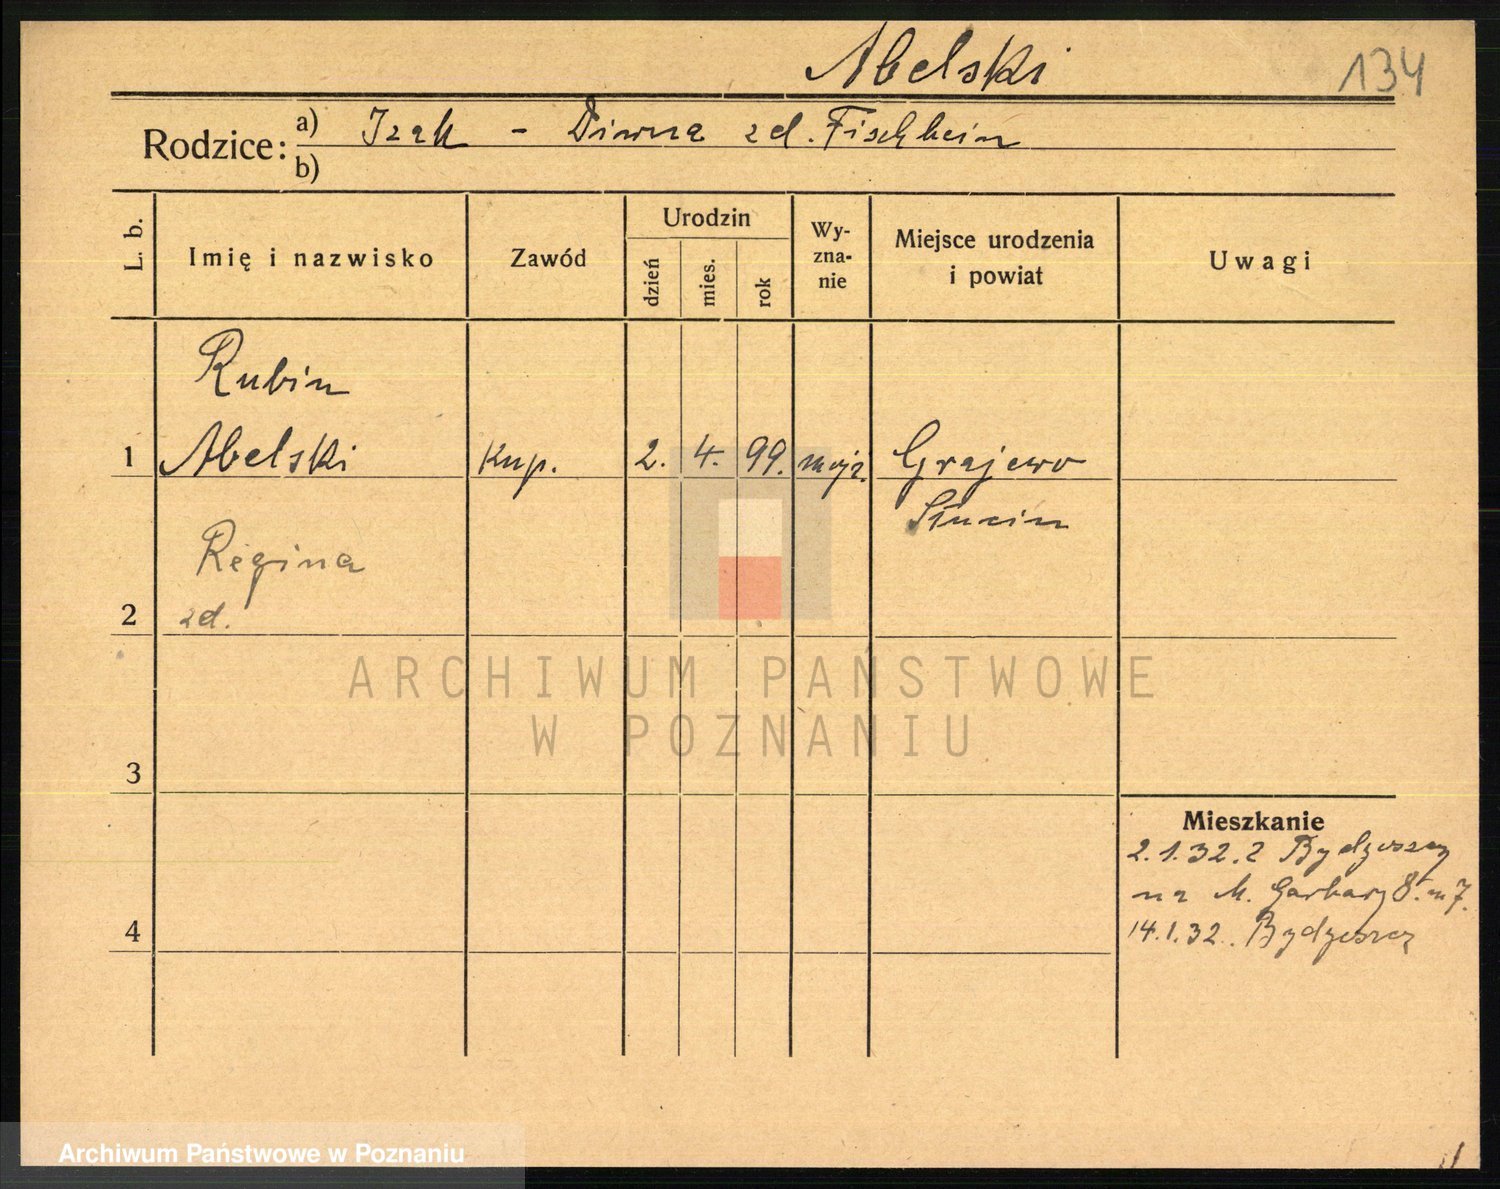 Abelski
134
Rodzice: a) Izak - Diwna zd. Fischbein
b)
L. b.
Imię i nazwisko
Zawód
Urodzin
dzień
mies.
rok
Wy-
zna-
nie
Miejsce urodzenia
i powiat
Uwagi
Rubin
1 Abelski Kup. 2. 4. 99. mojż. Grajewo
Regina
2 zd.
3
Mieszkanie
2.1.32. z Bydgoszczy
na M. Garbary 8. m 7.
4 14.1.32. Bydgoszcz
ARCHIWUM PAŃSTWOWE
W POZNANIU
Archiwum Państwowe w Poznaniu